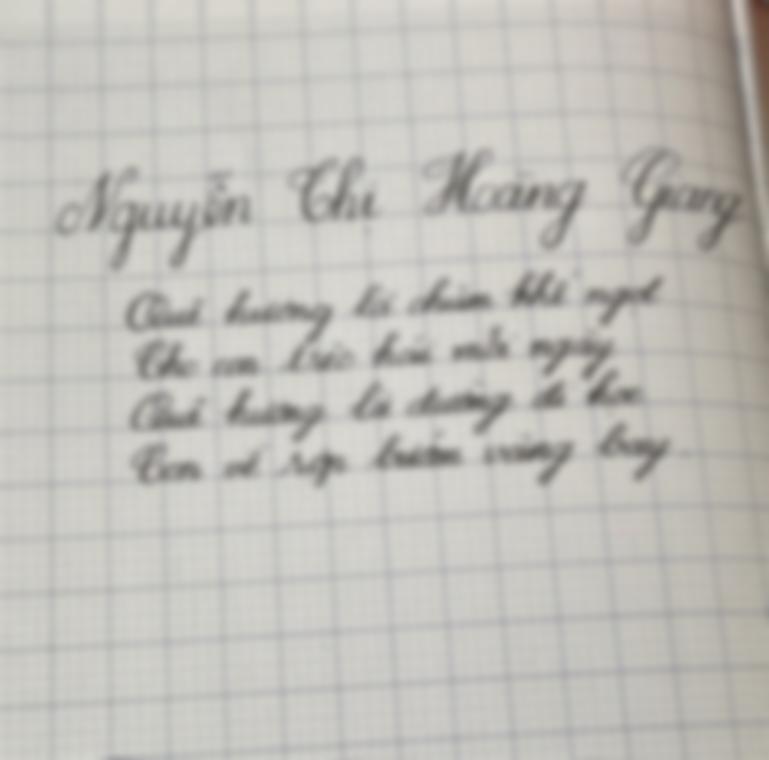 Nguyễn Thị Hoàng Giang
Quê hương là chùm khế ngọt
Cho con trèo hái mỗi ngày
Quê hương là đường đi học
Con về rợp bướm vàng bay